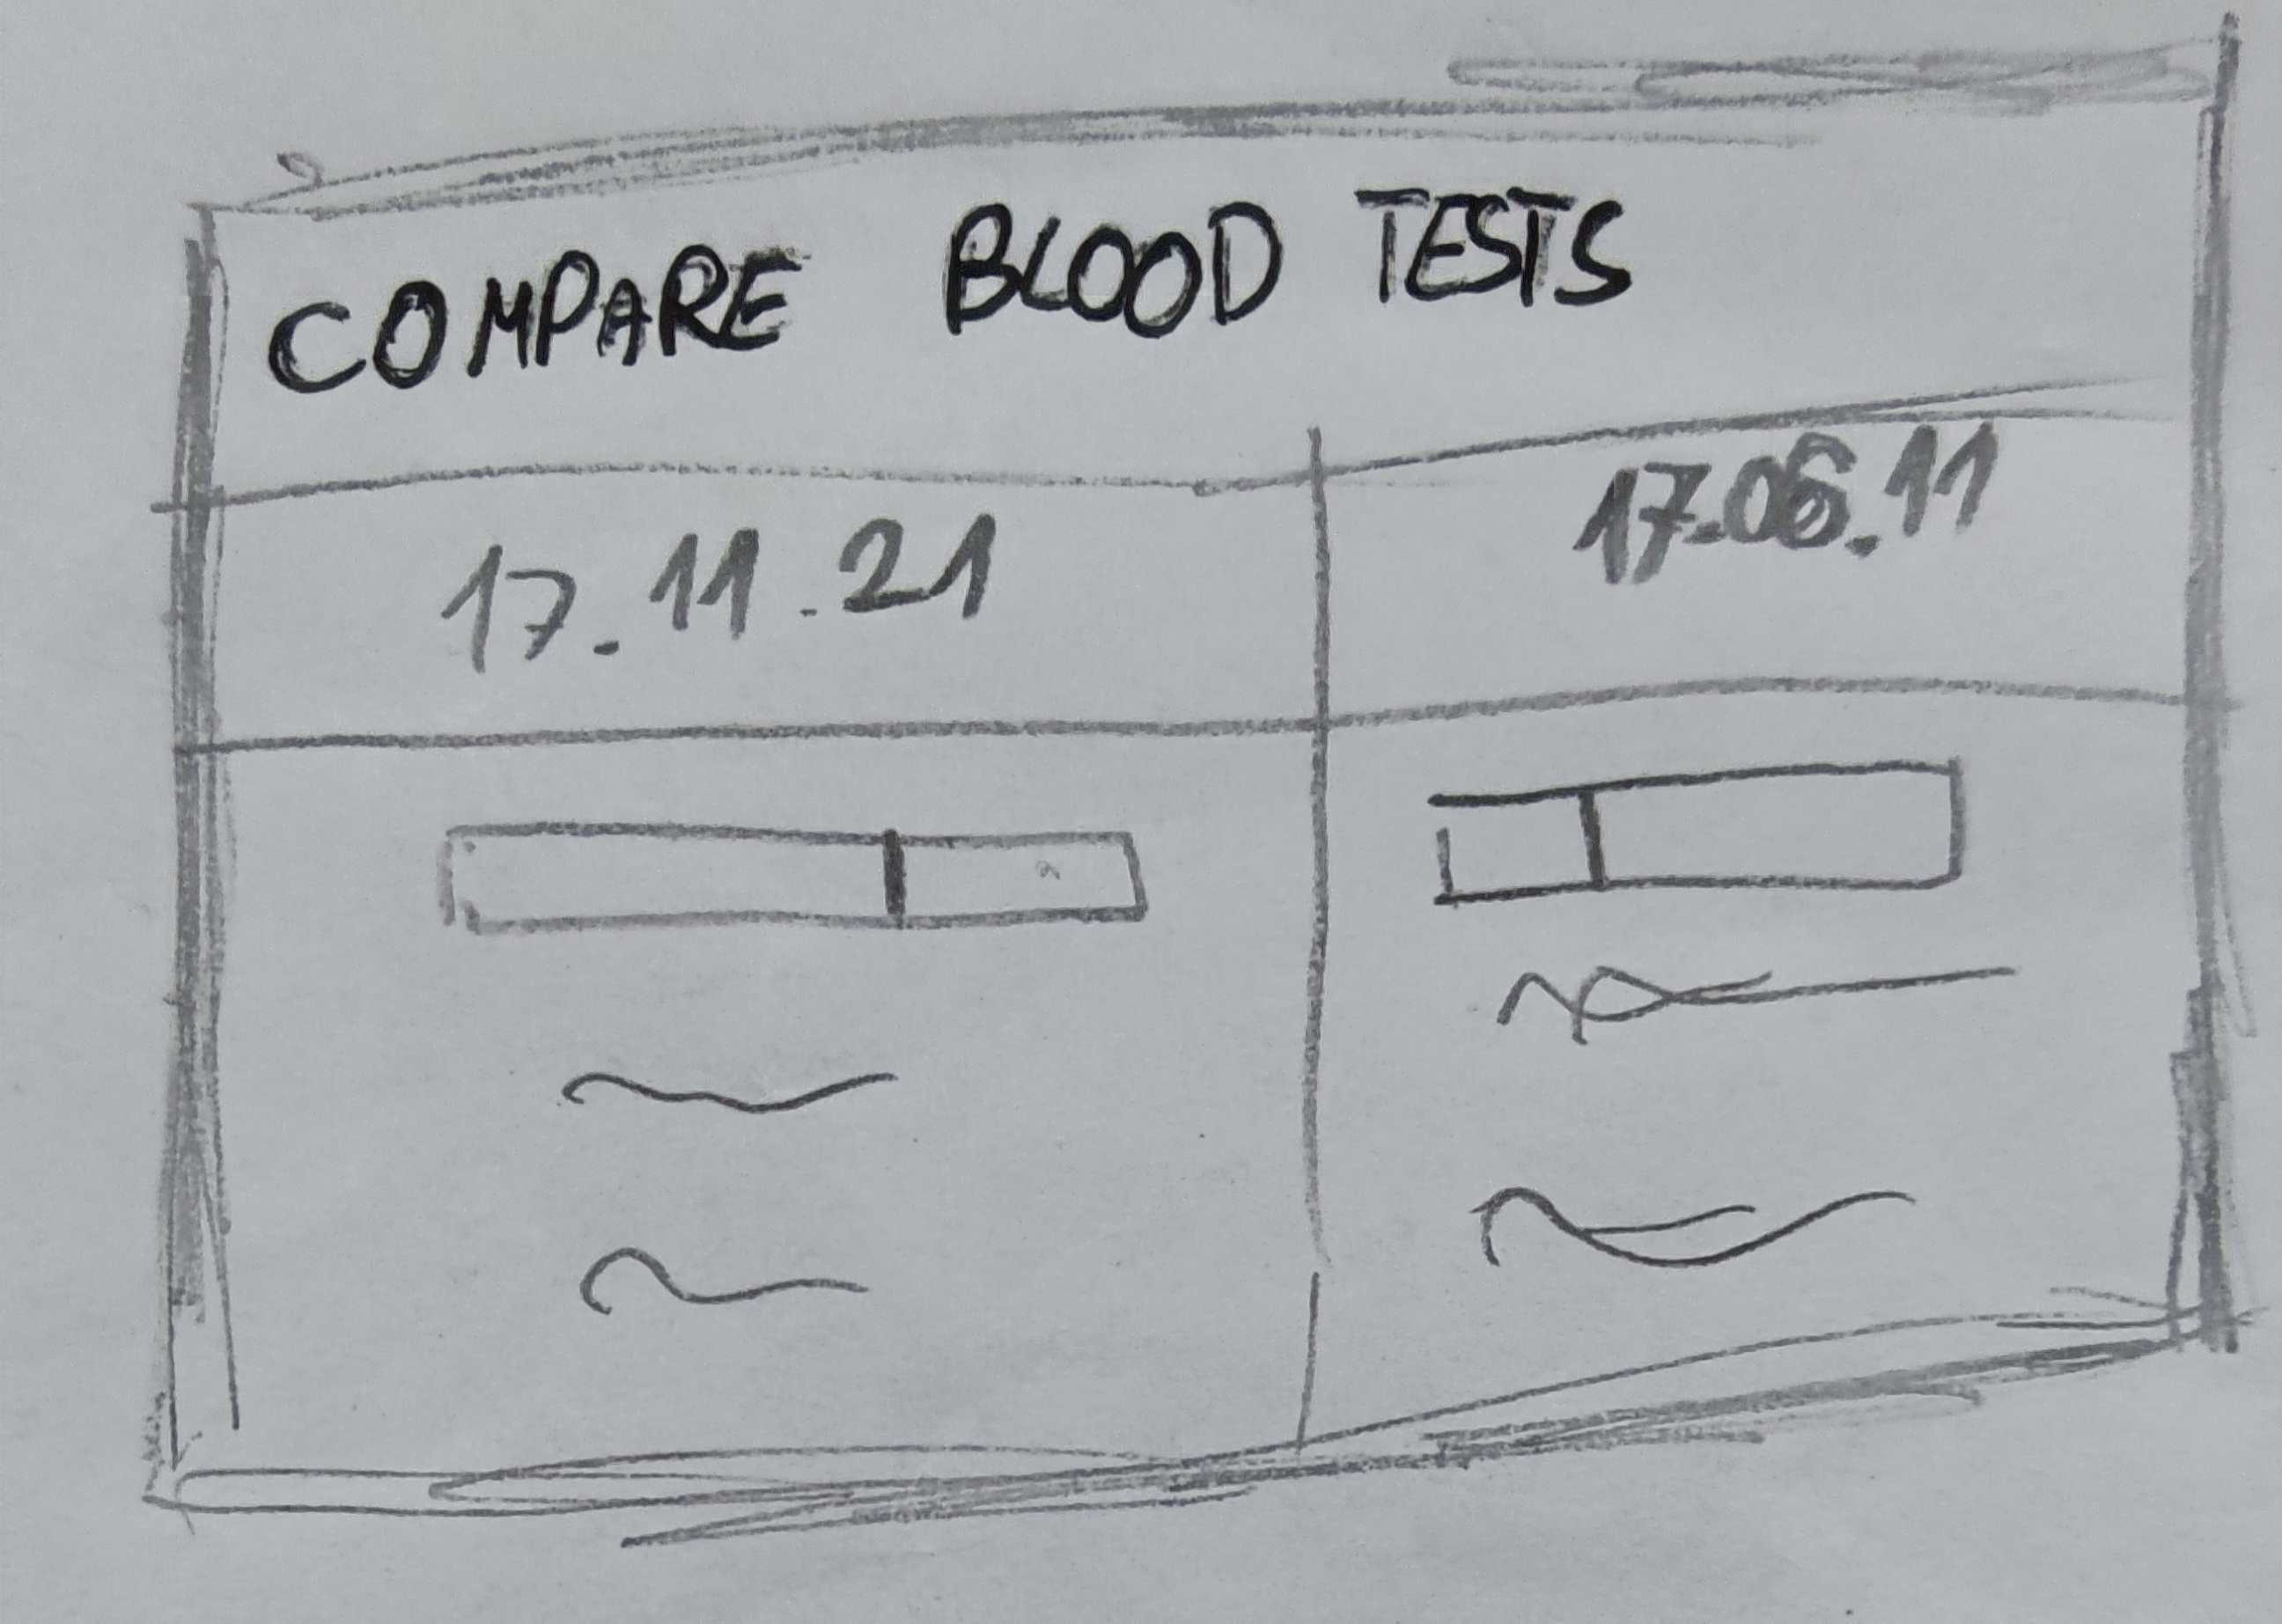 COMPARE BLOOD TESTS
17.11.21
17.06.11